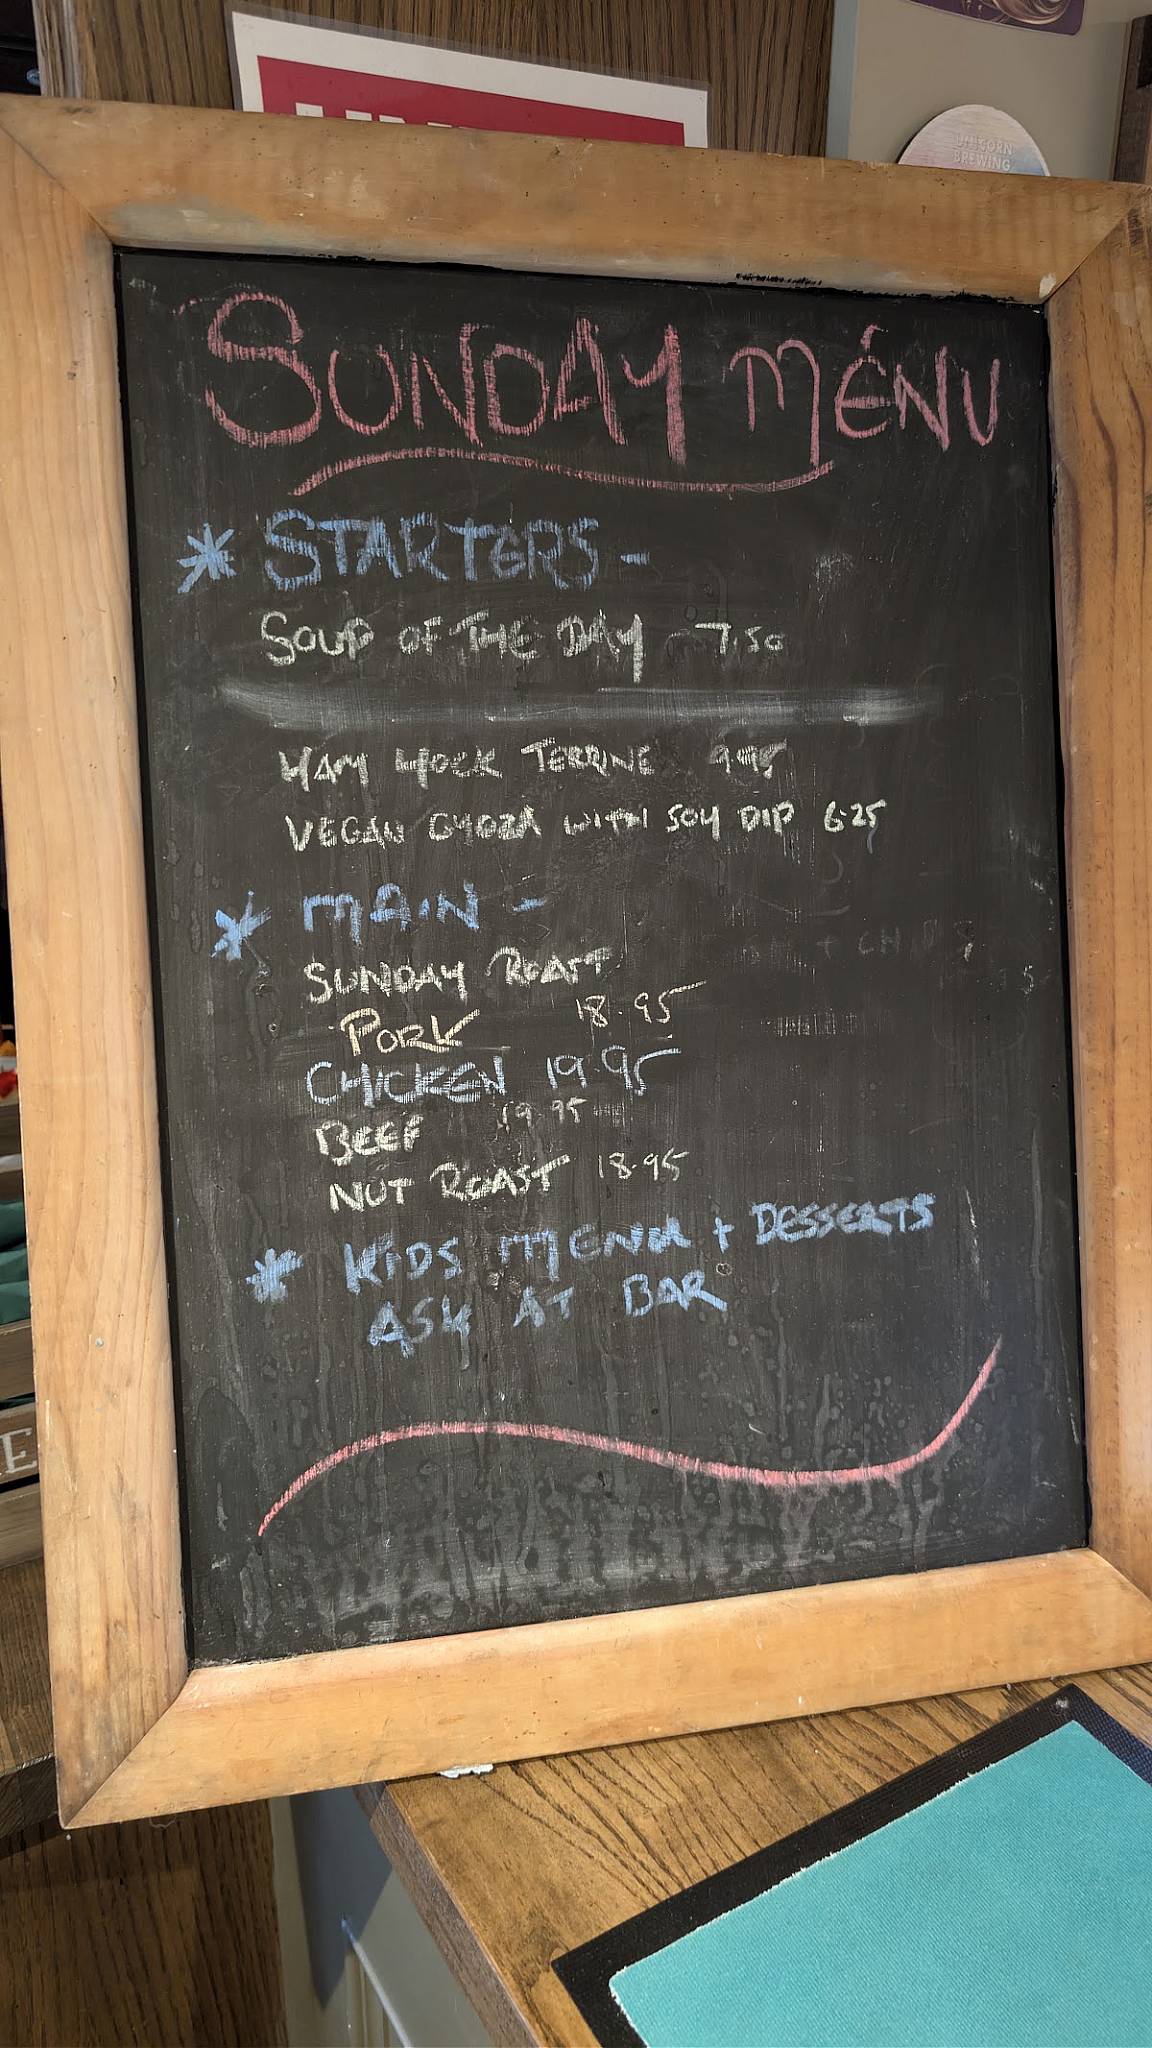 UNICORN
BREWING
SUNDAY MÉNU
* STARTERS -
SOUP OF THE DAY 7.50
HAM HOCK TERRINE 9.95
VEGAN GYOZA WITH SOY DIP 6.25
* MAIN -
SUNDAY ROAST
PORK 18.95
CHICKEN 19.95
BEEF 19.95
NUT ROAST 18.95
* KIDS MENU + DESSERTS
ASK AT BAR